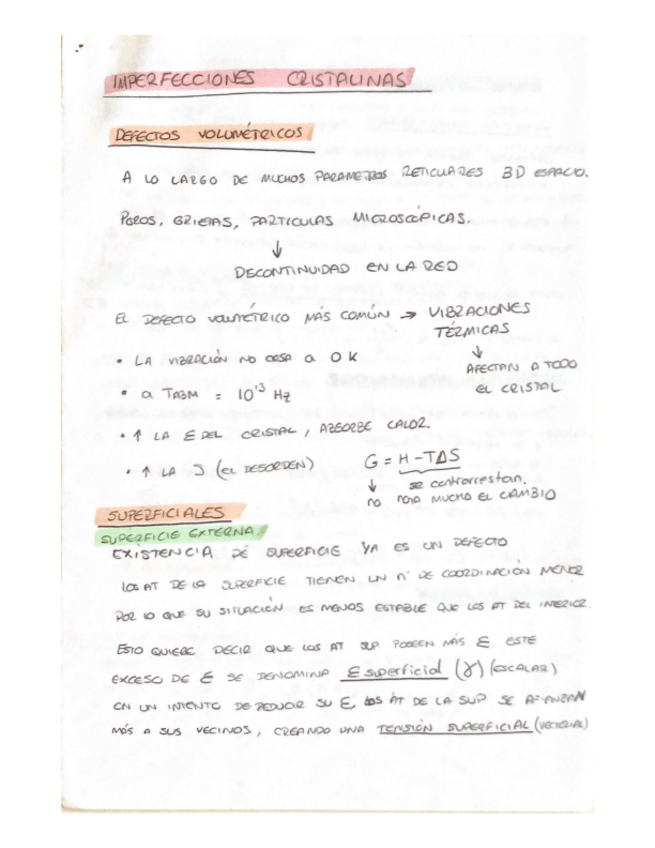 IMPERFECCIONES CRISTALINAS
DEFECTOS VOLUMÉTRICOS
A LO LARGO DE MUCHOS PARAMETROS RETICULARES 3D ESPACIO.
POROS, GRIETAS, PARTICULAS MICROSCÓPICAS.
↓
DISCONTINUIDAD EN LA RED
EL DEFECTO VOLUMÉTRICO MÁS COMÚN → VIBRACIONES
TÉRMICAS
↓
AFECTAN A TODO
EL CRISTAL
• LA VIBRACIÓN NO CESA a 0 K
• a TABM = 10¹³ Hz
• ↑ LA E DEL CRISTAL, ABSORBE CALOR.
• ↑ LA S (EL DESORDEN)
G = H - TΔS
↓ se contrarrestan.
no nota MUCHO EL CAMBIO
SUPERFICIALES
SUPERFICIE EXTERNA
EXISTENCIA DE SUPERFICIE YA ES UN DEFECTO
LOS AT DE LA SUPERFICIE TIENEN UN nº DE COORDINACIÓN MENOR
POR LO QUE SU SITUACIÓN ES MENOS ESTABLE QUE LOS AT DEL INTERIOR.
ESTO QUIERE DECIR QUE LOS AT SUP POSEEN MÁS E. ESTE
EXCESO DE E SE DENOMINA E superficial (γ) (ESCALAR)
EN UN INTENTO DE REDUCIR SU E, LOS AT DE LA SUP SE AFIANZAN
MÁS A SUS VECINOS, CREANDO UNA TENSIÓN SUPERFICIAL (VECTORIAL)